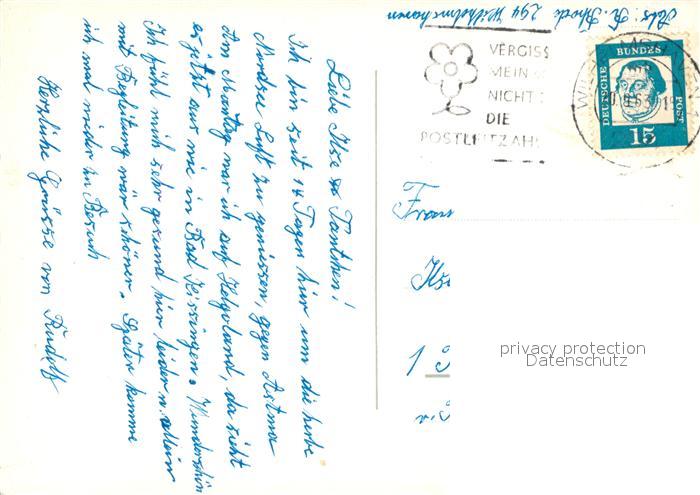 Abs: R. Rhode 294 Wilhelmshaven
VERGISS
MEIN
NICHT
DIE
POSTLEITZAHL
DEUTSCHE
BUNDES
POST
15
Liebe Ilse u Tantchen!
Ich bin seit 14 Tagen hier um die herbe
Nordsee Luft zu geniessen, gegen Astma
Am Montag war ich auf Helgoland, da sieht
es jetzt aus wie in Bad Kissingen. Wunderschön
Ich fühl mich sehr gesund hier leider n. allein
mit Begleitung wär schöner. Später komme
ich mal wieder zu Besuch
Herzliche Grüsse von Rudolf
Frau
Ilse
1
privacy protection
Datenschutz